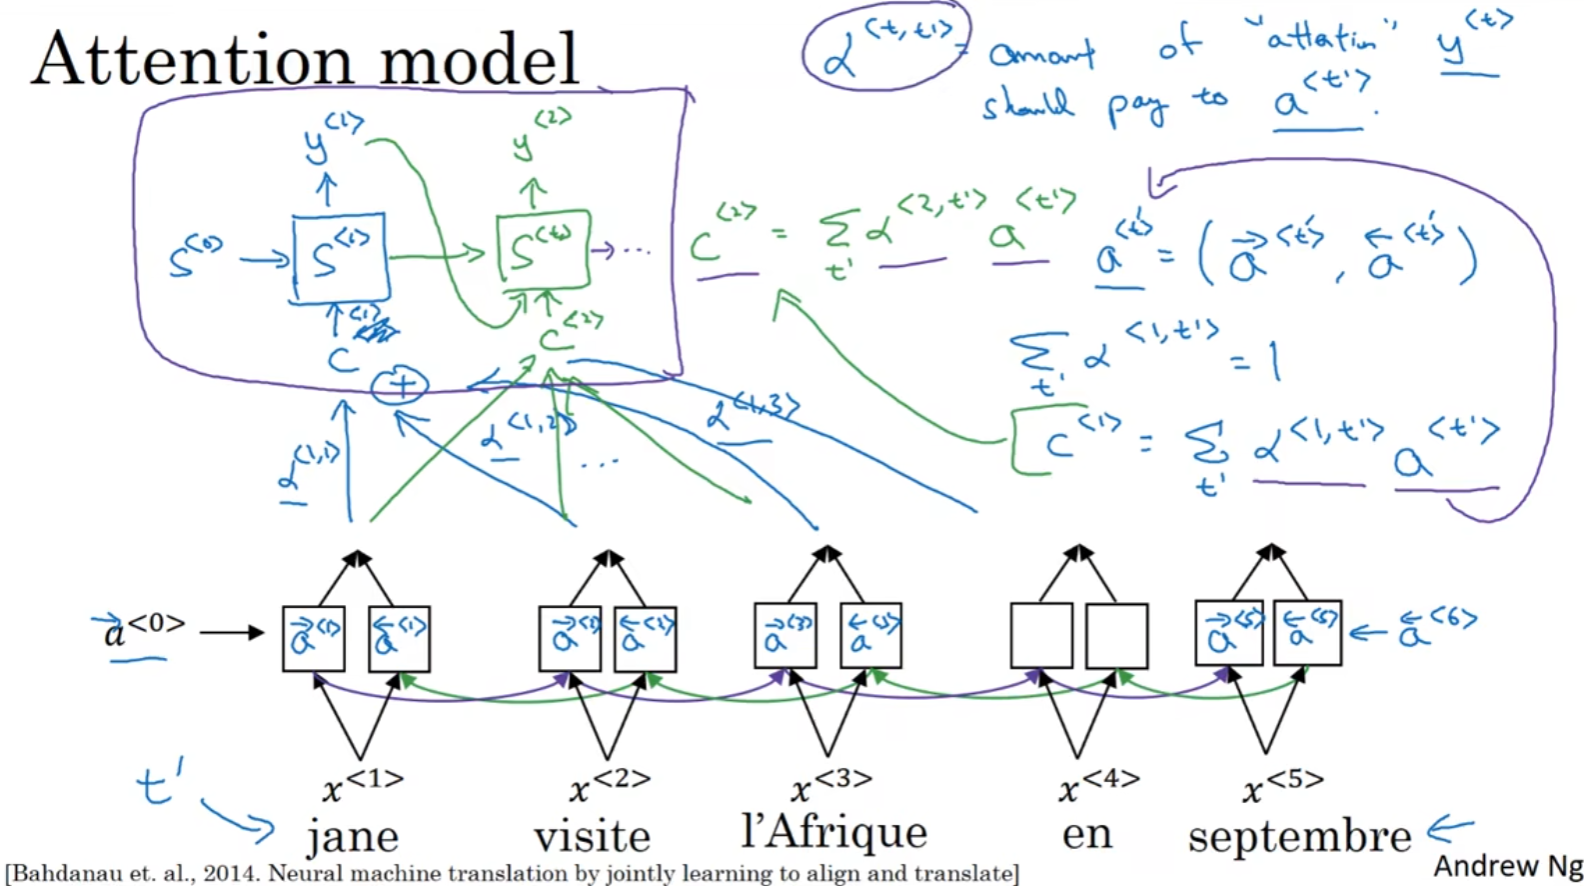 Attention model
α<t,t'> = amount of "attention" y<t>
should pay to a<t'>.
y<1> y<2>
s<0> → s<1> → s<t> → ...
c<1> c<2>
c<2> = Σt' α<2,t'> a<t'>
a<t'> = (a→<t'>, a←<t'>)
Σt' α<1,t'> = 1
c<1> = Σt' α<1,t'> a<t'>
+
α<1,1> α<1,2> ... α<1,3>
a→<0> a→<1> a←<1> a→<2> a←<2> a→<3> a←<3> a→<5> a←<5> ← a←<6>
t' x<1> x<2> x<3> x<4> x<5>
jane visite l'Afrique en septembre
[Bahdanau et. al., 2014. Neural machine translation by jointly learning to align and translate]
Andrew Ng